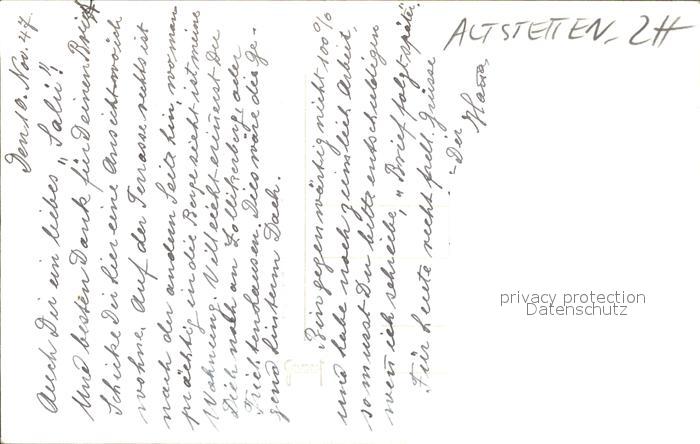 Den 10. Nov. 47.
Auch Dir ein liebes "Salü"!
Und besten Dank für Deinen Brief!
Schicke Dir hier eine Ansicht wo ich
wohne. Auf der Terrasse rechts ist
nach der andern Seite hin, wo man
prächtig in die Berge sieht ist meine
Wohnung. Vielleicht erinnerst Du
Dich noch an Zollikerberg oder
Trichtenhausen. Dies wäre die ge-
gend hinterm Dach.
Bin gegenwärtig nicht 100%
und habe noch ziemlich Arbeit,
so musst Du bitte entschuldigen
wenn ich schreibe, "Brief folgt später".
Für heute recht frdl. Grüsse
- Der
ALTSTETTEN - ZH
privacy protection
Datenschutz